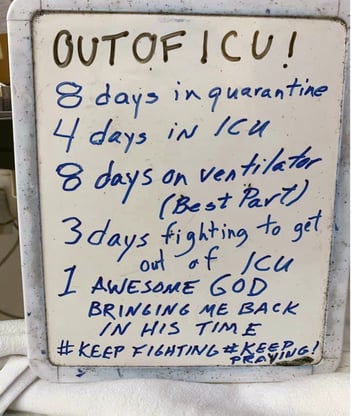 OUT OF ICU!
8 days in quarantine
4 days in ICU
8 days on ventilator
(Best Part)
3 days fighting to get
out of ICU
1 AWESOME GOD
BRINGING ME BACK
IN HIS TIME
#KEEP FIGHTING #KEEP
PRAYING!